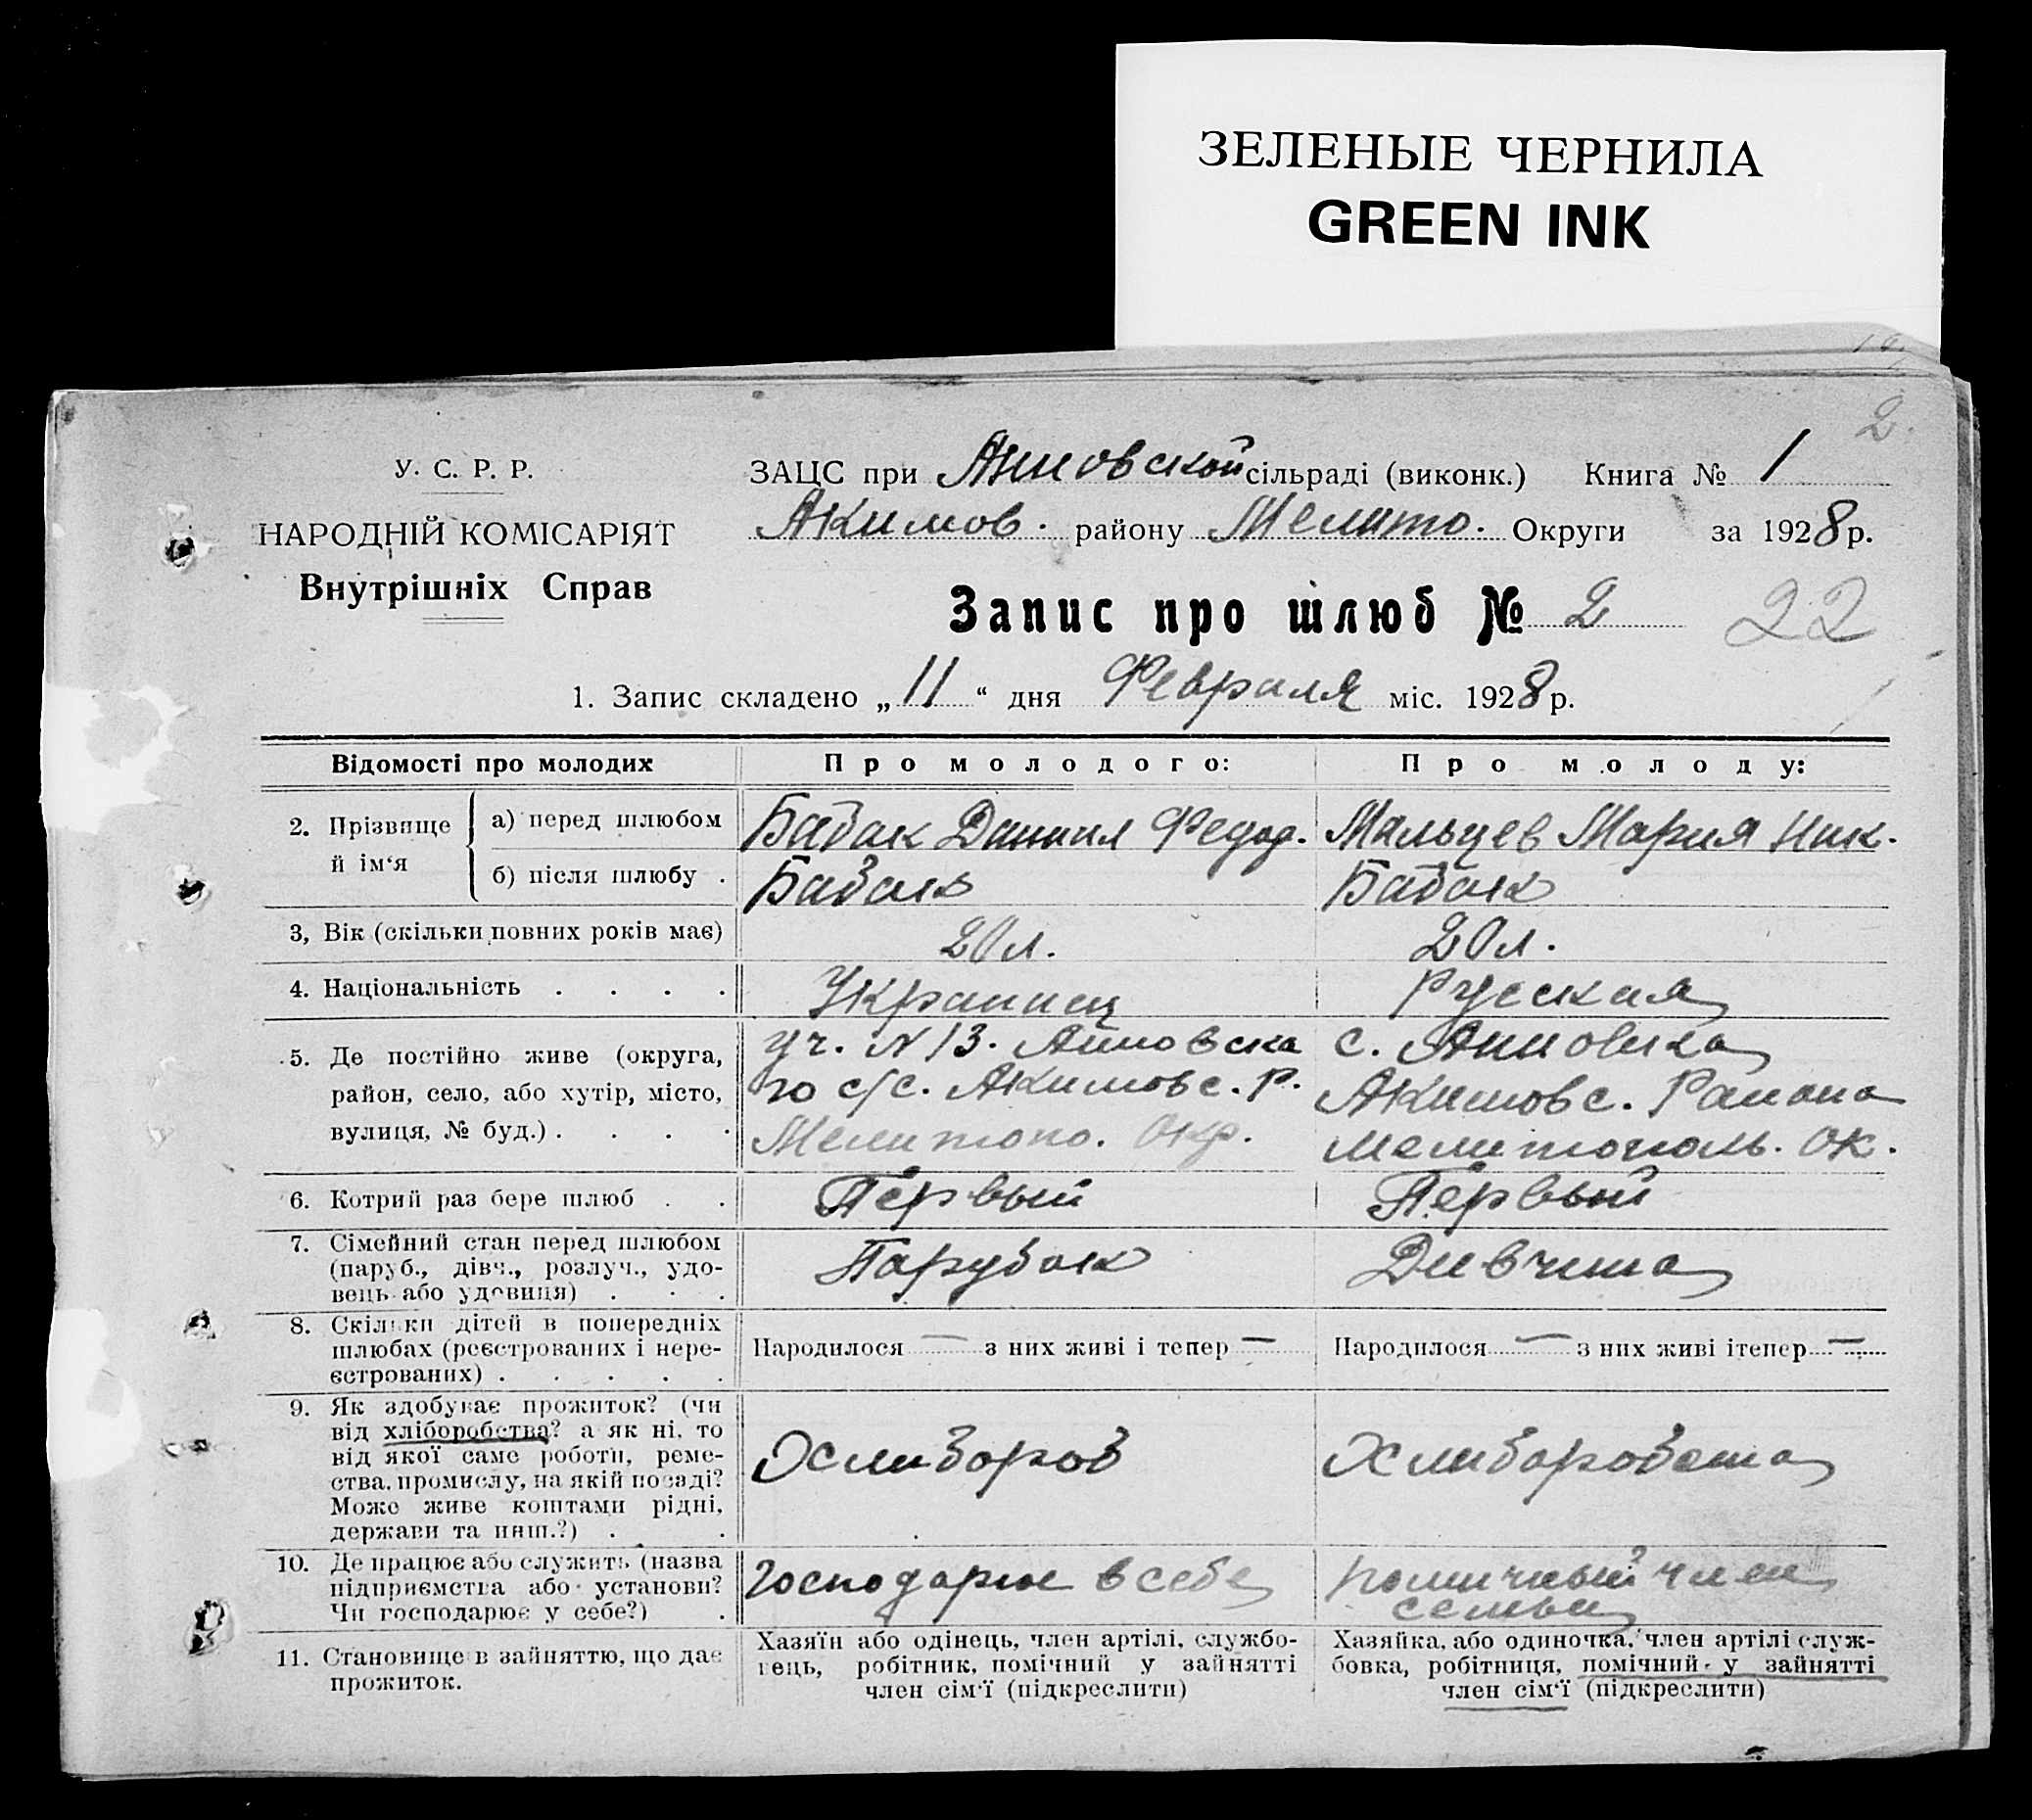 ЗЕЛЕНЫЕ ЧЕРНИЛА
GREEN INK
2.
У. С. Р. Р.
НАРОДНІЙ КОМІСАРІЯТ
Внутрішніх Справ
ЗАЦС при Анновской сільраді (виконк.) Книга № 1
Акимов. району Мелито. Округи за 1928 р.
Запис про шлюб № 2 22
1. Запис складено „ 11 “ дня Февраля міс. 1928 р.
Відомості про молодих Про молодого: Про молоду:
2. Прізвище й ім‘я а) перед шлюбом Бабак Данил Федор. Мальцев Мария Ник.
б) після шлюбу . Бабак Бабак
3, Вік (скільки повних років має) 20 л. 20 л.
4. Національність . . . . Украинец Русская
5. Де постійно живе (округа, район, село, або хутір, місто, вулиця, № буд.) . . . .
уч. N 13. Анновска
го с/с. Акимовс. р.
Мелитопо. Окр.
с. Анновка
Акимовс. Райана
Мелитополь. Ок.
6. Котрий раз бере шлюб . . Первый Первый
7. Сімейний стан перед шлюбом
(паруб., дівч., розлуч., удо-
вець або удовиця) . . . Парубок Дивчина
8. Скільки дітей в попередніх
шлюбах (реєстрованих і нере-
єстрованих) . . . . .
Народилося — з них живі і тепер —
Народилося — з них живі ітепер —
9. Як здобуває прожиток? (чи
від хліборобства? а як ні, то
від якої саме роботи, реме-
ства, промислу, на якій посаді?
Може живе коштами рідні,
держави та инш.?) . .
Хлибороб
Хлиборобства
10. Де працює або служить (назва
підприємства або установи?
Чи господарює у себе?) .
Господарює в себе
помичный член
семьи
11. Становище в зайняттю, що дає
прожиток.
Хазяїн або одінець, член артілі, службо-
вець, робітник, помічний у зайнятті
член сім‘ї (підкреслити)
Хазяйка, або одиночка, член артілі служ-
бовка, робітниця, помічний у зайнятті
член сім‘ї (підкреслити)